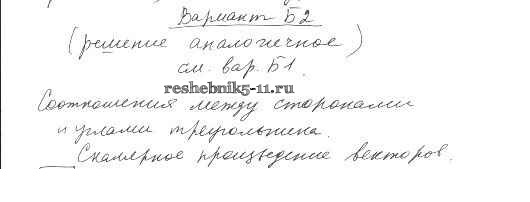 Вариант Б2
(решение аналогичное)
см. вар. Б1.
reshebnik5-11.ru
Соотношения между сторонами
и углами треугольника.
Скалярное произведение векторов.